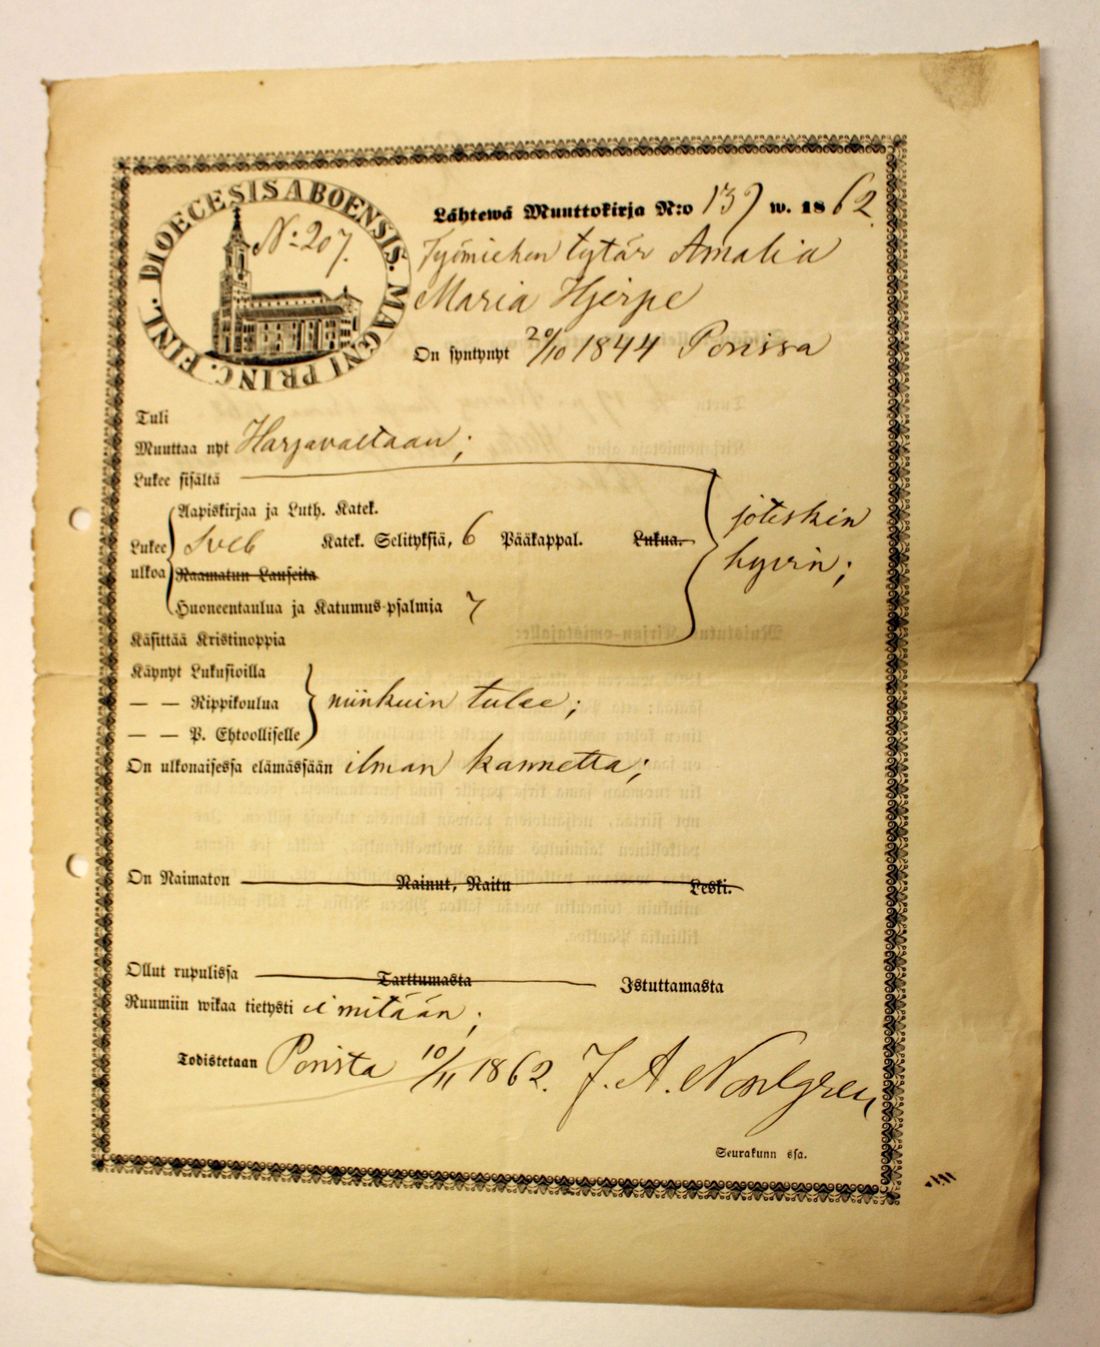 DIOECESIS ABOENSIS. MAGNI PRINC. FINL.
N:o 207.
Lähtewä Muuttokirja N:o 139 w. 1862.
Työmiehen tytär Amalia
Maria Hjerpe
On syntynyt 20/10 1844 Porissa
Tuli
Muuttaa nyt Harjavaltaan;
Lukee sisältä
Aapiskirjaa ja Luth. Katek.
Lukee Sveb Katek. Selityksiä, 6 Pääkappal. Lukua.
ulkoa Raamatun Lauseita
jotiskin
hyvin;
Huoneentaulua ja Katumus-psalmia 7
Käsittää Kristinoppia
Käynyt Lukusioilla
— — Rippikoulua niinkuin tulee;
— — P. Ehtoolliselle
On ulkonaisessa elämässään ilman kannetta;
On Naimaton Nainut, Naitu Leski.
Ollut rupulissa Tarttumasta Istuttamasta
Ruumiin wikaa tietysti ei mitään;
Todistetaan Porista 10/11 1862. J. A. Norlgren
Seurakunn ssa.